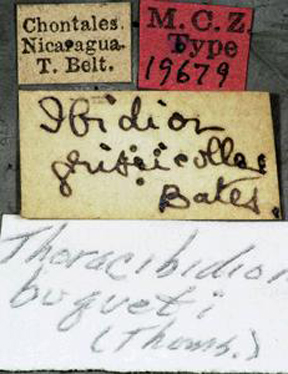 Chontales.
Nicaragua.
T. Belt.
M. C. Z.
Type
19679
Ibidion
griseicolle
Bates.
Thoracibidion
buqueti
(Thoms.)